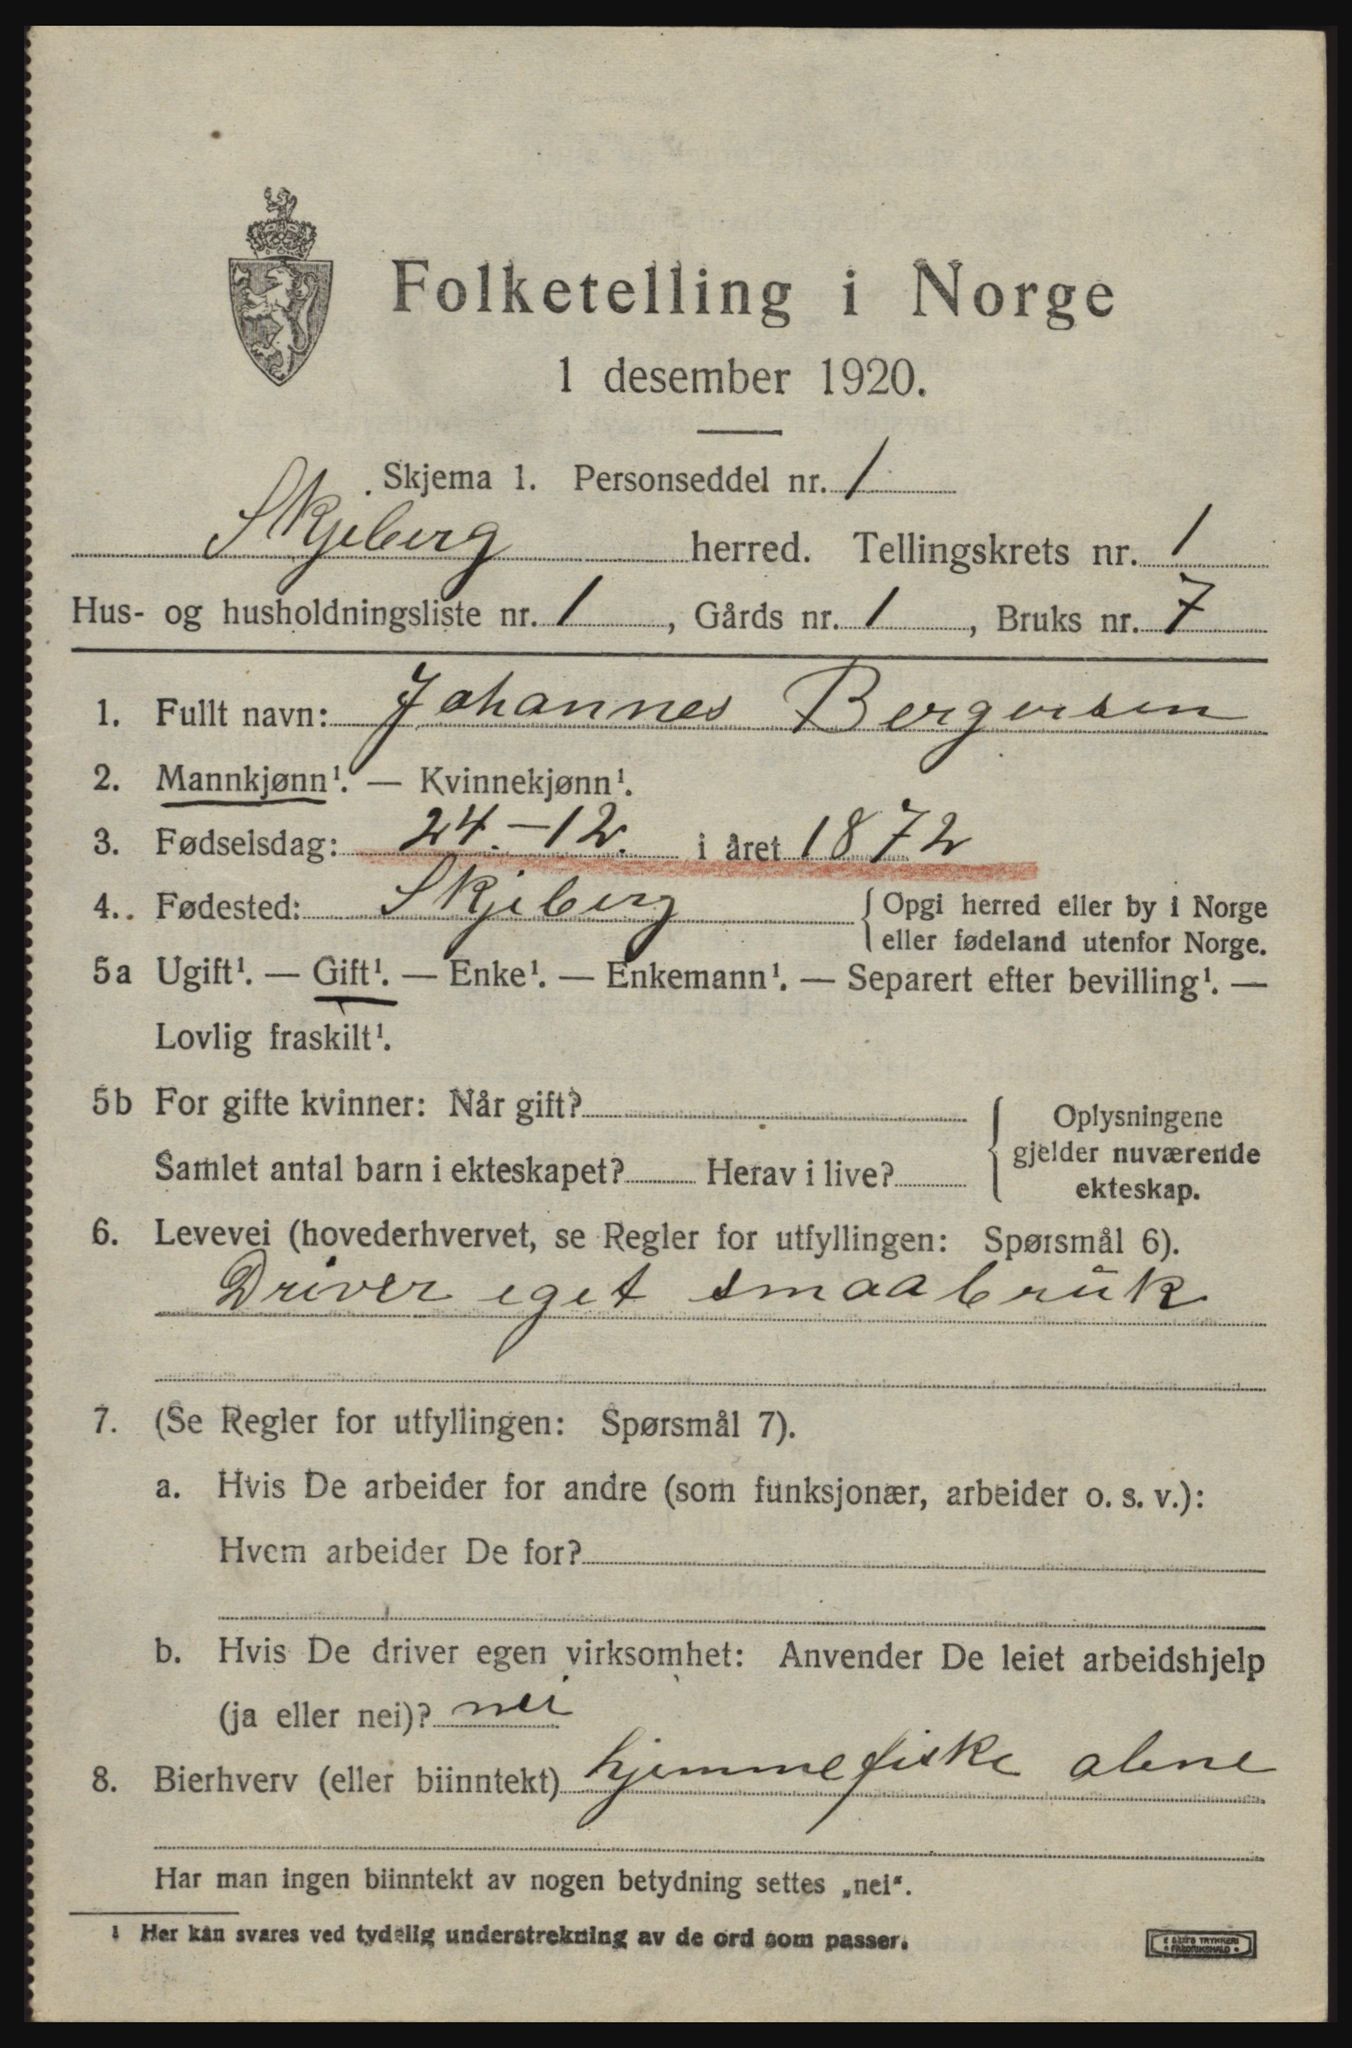 Folketelling i Norge
1 desember 1920.
Skjema 1. Personseddel nr. 1
Skjeberg herred. Tellingskrets nr. 1
Hus- og husholdningsliste nr. 1, Gårds nr. 1, Bruks nr. 7
1. Fullt navn: Johannes Bergersen
2. Mannkjønn¹. — Kvinnekjønn¹.
3. Fødselsdag: 24.-12. i året 1872
4. Fødested: Skjeberg { Opgi herred eller by i Norge
eller fødeland utenfor Norge.
5a Ugift¹. — Gift¹. — Enke¹. — Enkemann¹. — Separert efter bevilling¹. —
Lovlig fraskilt¹.
5b For gifte kvinner: Når gift?
Oplysningene
gjelder nuværende
ekteskap.
Samlet antal barn i ekteskapet? Herav i live?
6. Levevei (hovederhvervet, se Regler for utfyllingen: Spørsmål 6).
Driver eget smaabruk
7. (Se Regler for utfyllingen: Spørsmål 7).
a. Hvis De arbeider for andre (som funksjonær, arbeider o. s. v.):
Hvem arbeider De for?
b. Hvis De driver egen virksomhet: Anvender De leiet arbeidshjelp
(ja eller nei)? nei
8. Bierhverv (eller biinntekt) hjemmefiske alene
Har man ingen biinntekt av nogen betydning settes „nei“.
¹ Her kan svares ved tydelig understrekning av de ord som passer.
TRYKKERI
FREDRIKSHALD